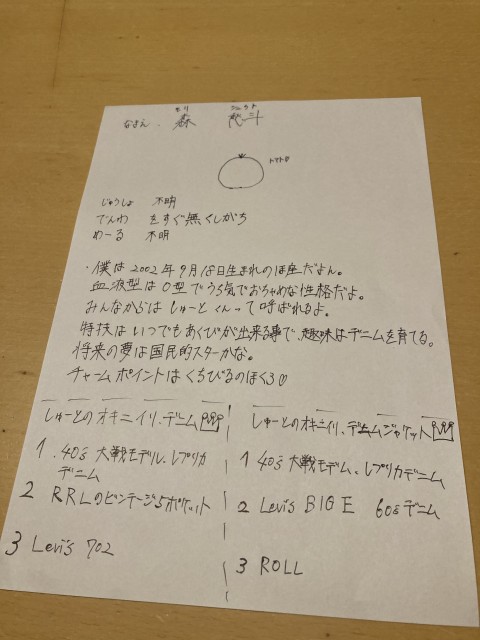 もり しゅうと
なまえ. 森 脩斗
トマト
じゅうしょ 不明
でんわ をすぐ無くしがち
めーる 不明
・僕は2002年9月 日生まれの 座だよん。
血液型はO型でうち気でおちゃめな性格だよ。
みんなからは しゅーとくんって呼ばれるよ。
特技はいつでもあくびが出来る事で、趣味はデニムを育てる。
将来の夢は国民的スターかな。
チャームポイントはくちびるのほくろ♡
しゅーとのオキニイリ、デニム
1 .40s 大戦モデル、レプリカ
デニム
2 RRLのビンテージ5ポケット
3 Levi's 702
しゅーとのオキニイリ、デニムジャケット
1 40s 大戦モデム、レプリカデニム
2 Levi's BIG E 60sデニム
3 ROLL